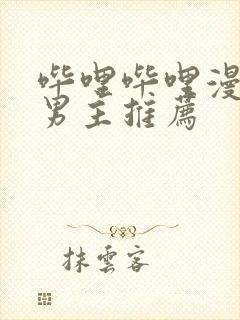 哔哩哔哩漫
男主推薦
抹雲客